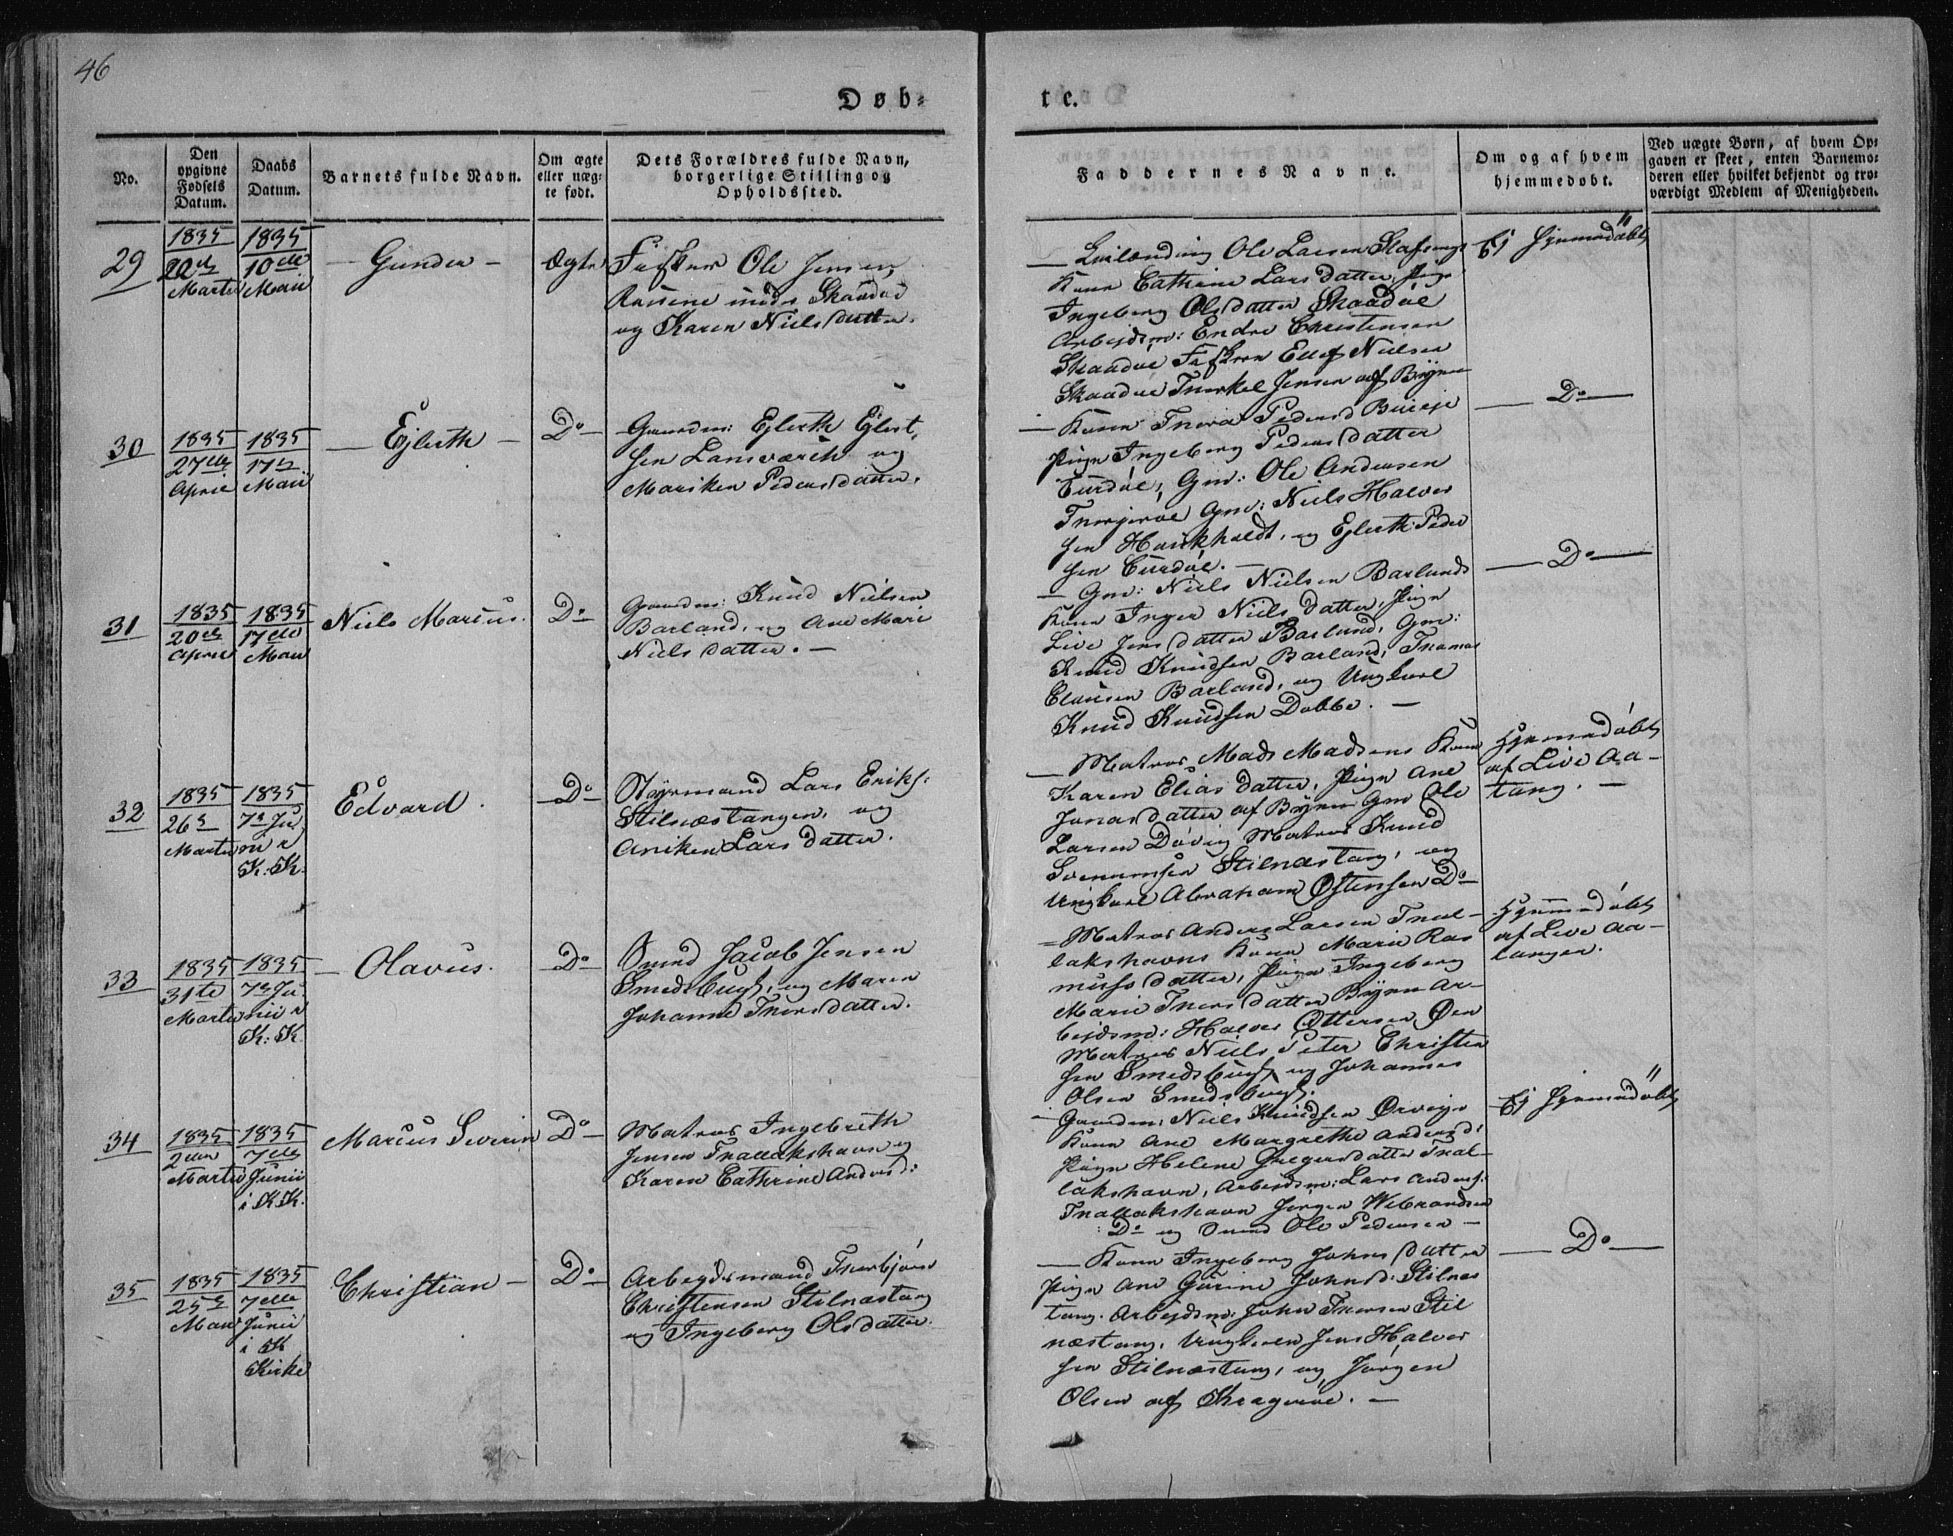 46
Døb-
te.
No.
Den opgivne Fødsels Datum.
Daabs Datum.
Barnets fulde Navn.
Om ægte eller uægte født.
Dets Forældres fulde Navn,
borgerlige Stilling og
Opholdssted.
Faddernes Navne.
Om og af hvem
hjemmedøbt.
Ved uægte Børn, af hvem Op-
gaven er skeet, enten Barnemo-
deren eller hvilket bekjendt og tro-
værdigt Medlem af Menigheden.
29
1835
Martii
1835
10de
Maii
Gunder
Ægte
Fisker Ole Jensen
Skaadøe
og Karen Nielsdatter.
Ole Larsen
Kone Cathrine Larsdatter, Pige
Ingeborg Olsdatter Skaadøe
Arbejdsm: Endre Christensen
Skaadøe Fisker Ellef Nielsen
Skaadøe Thorkel Jensen af Byen
Ej Hjemmedøbt
30
1835
27de
April
1835
17de
Maii
Ejlerth
Do
Gaardm: Ejlerth Ejlert-
sen Lansværch og
Mariken Pedersdatter.
Kone Thora Peders
Pige Ingeborg Pedersdatter
Furøe, Gm: Ole Andersen
Gm: Niels Halvor
sen og Ejlerth Peder
sen
Do
31
1835
20de
April
1835
17de
Maii
Niels Marcus.
Do
Gaardm: Knud Nielsen
Barland, og Ane Mari
Nielsdatter.
Gm: Niels Nielsen Barlands
Kone Inger Nielsdatter, Pige
Live Jensdatter Barland, Gm:
Knud Knudsen Barland, Thomas
Clausen Barland, og Ungkarl
Knud Knudsen Dobbe.
Do
32
1835
26de
Martii
1835
7de Ju
nii i
K: K.
Edvard.
Do
Styrmand Lars Eriks:
Stilnæstangen, og
Aniken Larsdatter.
Matros Mads Madsens Kone
Karen Eliasdatter, Pige Ane
Jonasdatter af Byen Gm Ole
Larsen Døvig Matros Knud
Stilnæstang, og
Ungkarl Abraham Østensen Do
Hjemmedøbt
af Live Aa-
tang.
33
1835
31te
Martii
1835
7de Ju-
nii i
K: K.
Olavus.
Do
Jacob Jensen
Smedsbugt, og Maren
Johanne Thorsdatter.
Matros Anders Larsen Tral-
lakshavns Kone Marie Ras
musdatter, Pige Ingeborg
Marie Thorsdatter Byen Ar-
bejdsm: Halvor Ottersen Øen
Matros Niels Peter Christen
sen Smedsbugt, og Johannes
Olsen Smedsbugt.
Hjemmedøbt
af Live Aa-
tangen.
34
1835
2den
Martii
1835
7de
Junii
i K.K.
Marcus Severin
Do
Matros Ingebreth
Jensen Trallakshavn og
Karen Cathrine Andersd:
Gaardm: Niels Knudsen
Kone Ane Margrethe Andersd,
Pige Helene Gregersdatter Tral-
lakshavn, Arbejdsm: Lars Anders:
Trallakshavn Jørgen Wibrandsen
Do og Ole Pedersen
Ej Hjemmedøbt
35
1835
25de
Maii
1835
7de
Junii
i K
Kirke
Christian
Do
Arbejdsmand Thorbjørn
Christensen Stilnæstang
og Ingeborg Olsdatter.
Kone Ingeborg Johnsdatter
Pige Ane Gurine Johnsd: Stilnæs
tang. Arbejdsm: John Thorsen Stil
næstang, Ungkarlen Jens Halvor
sen Stilnæstang, og Jørgen
Olsen af Kragerøe.
Do